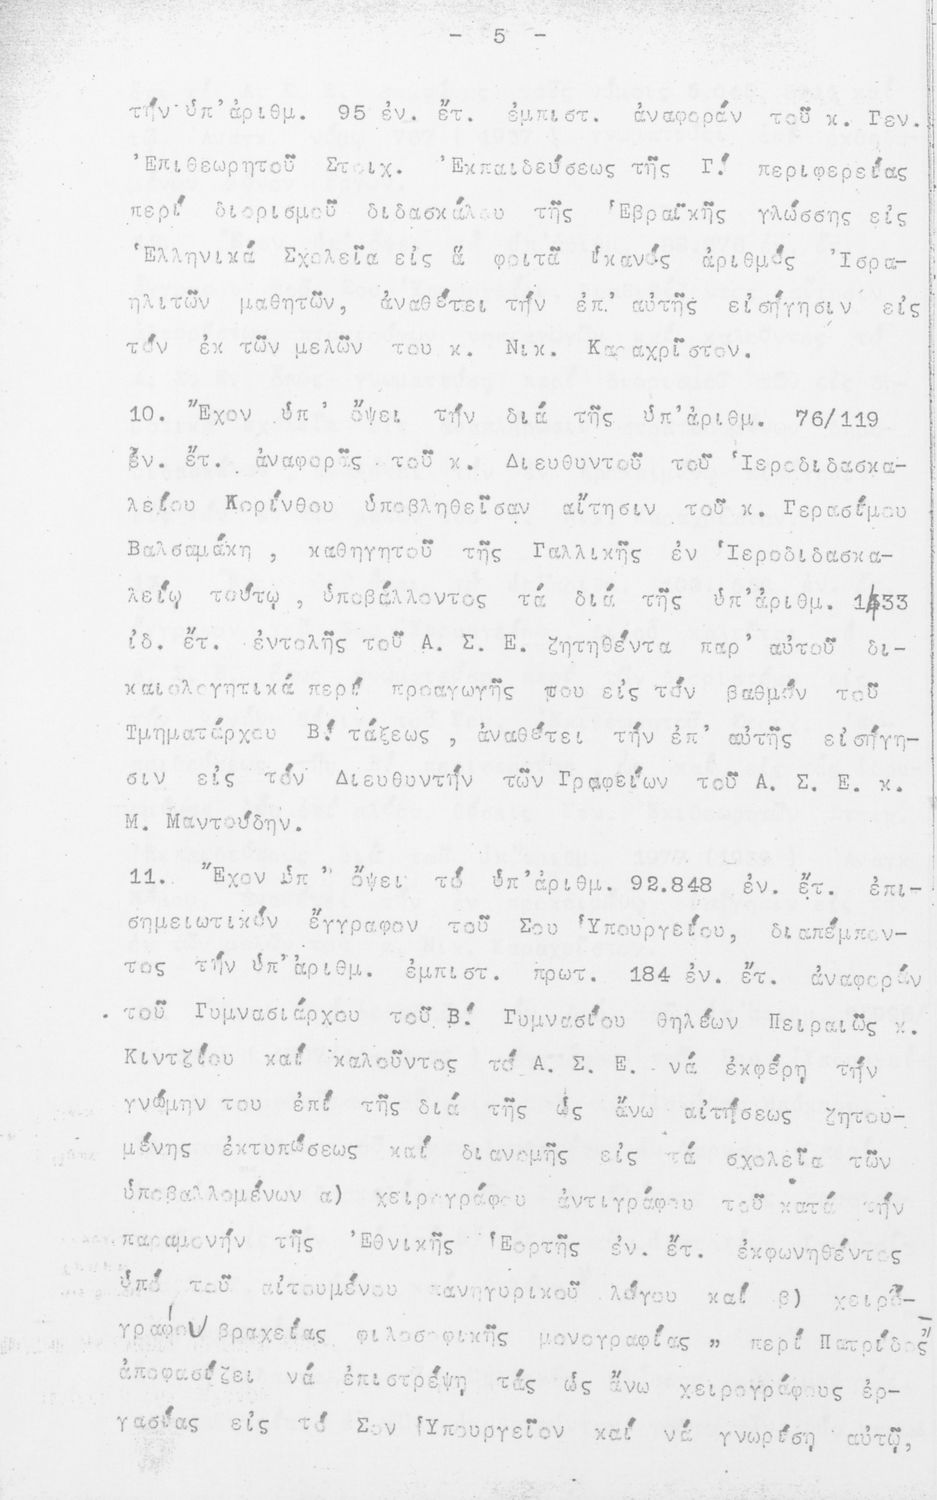 - 5 -
τήν ὑπ' ἀριθμ. 95 ἐν. ἔτ. ἐμπιστ. ἀναφοράν τοῦ κ. Γεν.
Ἐπιθεωρητοῦ Στοιχ. Ἐκπαιδεύσεως τῆς Γ΄ περιφερείας
περί διορισμοῦ διδασκάλου τῆς Ἑβραϊκῆς γλώσσης εἰς
Ἑλληνικά Σχολεῖα εἰς ἅ φοιτᾶ ἱκανός ἀριθμός Ἰσρα-
ηλιτῶν μαθητῶν, ἀναθέτει τήν ἐπ' αὐτῆς εἰσήγησιν εἰς
τόν ἐκ τῶν μελῶν του κ. Νικ. Καραχρῖστον.
10. Ἔχον ὑπ' ὄψει τήν διά τῆς ὑπ' ἀριθμ. 76/119
ἐν. ἔτ. ἀναφορᾶς τοῦ κ. Διευθυντοῦ τοῦ Ἱεροδιδασκα-
λείου Κορίνθου ὑποβληθεῖσαν αἴτησιν τοῦ κ. Γερασίμου
Βαλσαμάκη, καθηγητοῦ τῆς Γαλλικῆς ἐν Ἱεροδιδασκα-
λείῳ τούτῳ, ὑποβάλλοντος τά διά τῆς ὑπ' ἀριθμ.
ἰδ. ἔτ. ἐντολῆς τοῦ Α. Σ. Ε. ζητηθέντα παρ' αὐτοῦ δι-
καιολογητικά περί προαγωγῆς που εἰς τόν βαθμόν τοῦ
Τμηματάρχου Β΄ τάξεως, ἀναθέτει τήν ἐπ' αὐτῆς εἰσήγη-
σιν εἰς τόν Διευθυντήν τῶν Γραφείων τοῦ Α. Σ. Ε. κ.
Μ. Μαντούδην.
11. Ἔχον ὑπ' ὄψει τό ὑπ' ἀριθμ. 92.848 ἐν. ἔτ. ἐπι-
σημειωτικόν ἔγγραφον τοῦ Σου Ὑπουργείου, διαπέμπον-
τος τήν ὑπ' ἀριθμ. ἐμπιστ. πρωτ. 184 ἐν. ἔτ. ἀναφοράν
τοῦ Γυμνασιάρχου τοῦ Β΄ Γυμνασίου θηλέων Πειραιῶς κ.
Κιντζίου καί καλοῦντος τό Α. Σ. Ε. νά ἐκφέρῃ τήν
γνώμην του ἐπί τῆς διά τῆς ὡς ἄνω αἰτήσεως ζητου-
μένης ἐκτυπώσεως καί διανομῆς εἰς τά σχολεῖα τῶν
ὑποβαλλομένων α) χειρογράφου ἀντιγράφου τοῦ κατά τήν
παραμονήν τῆς Ἐθνικῆς Ἑορτῆς ἐν. ἔτ. ἐκφωνηθέντος
ὑπό τοῦ αἰτουμένου πανηγυρικοῦ λόγου καί β) χειρο-
γράφου βραχείας φιλοσοφικῆς μονογραφίας „ περί Πατρίδος "
ἀποφασίζει νά ἐπιστρέψῃ τάς ὡς ἄνω χειρογράφους ἐρ-
γασίας εἰς τό Σον Ὑπουργεῖον καί νά γνωρίσῃ αὐτῷ,